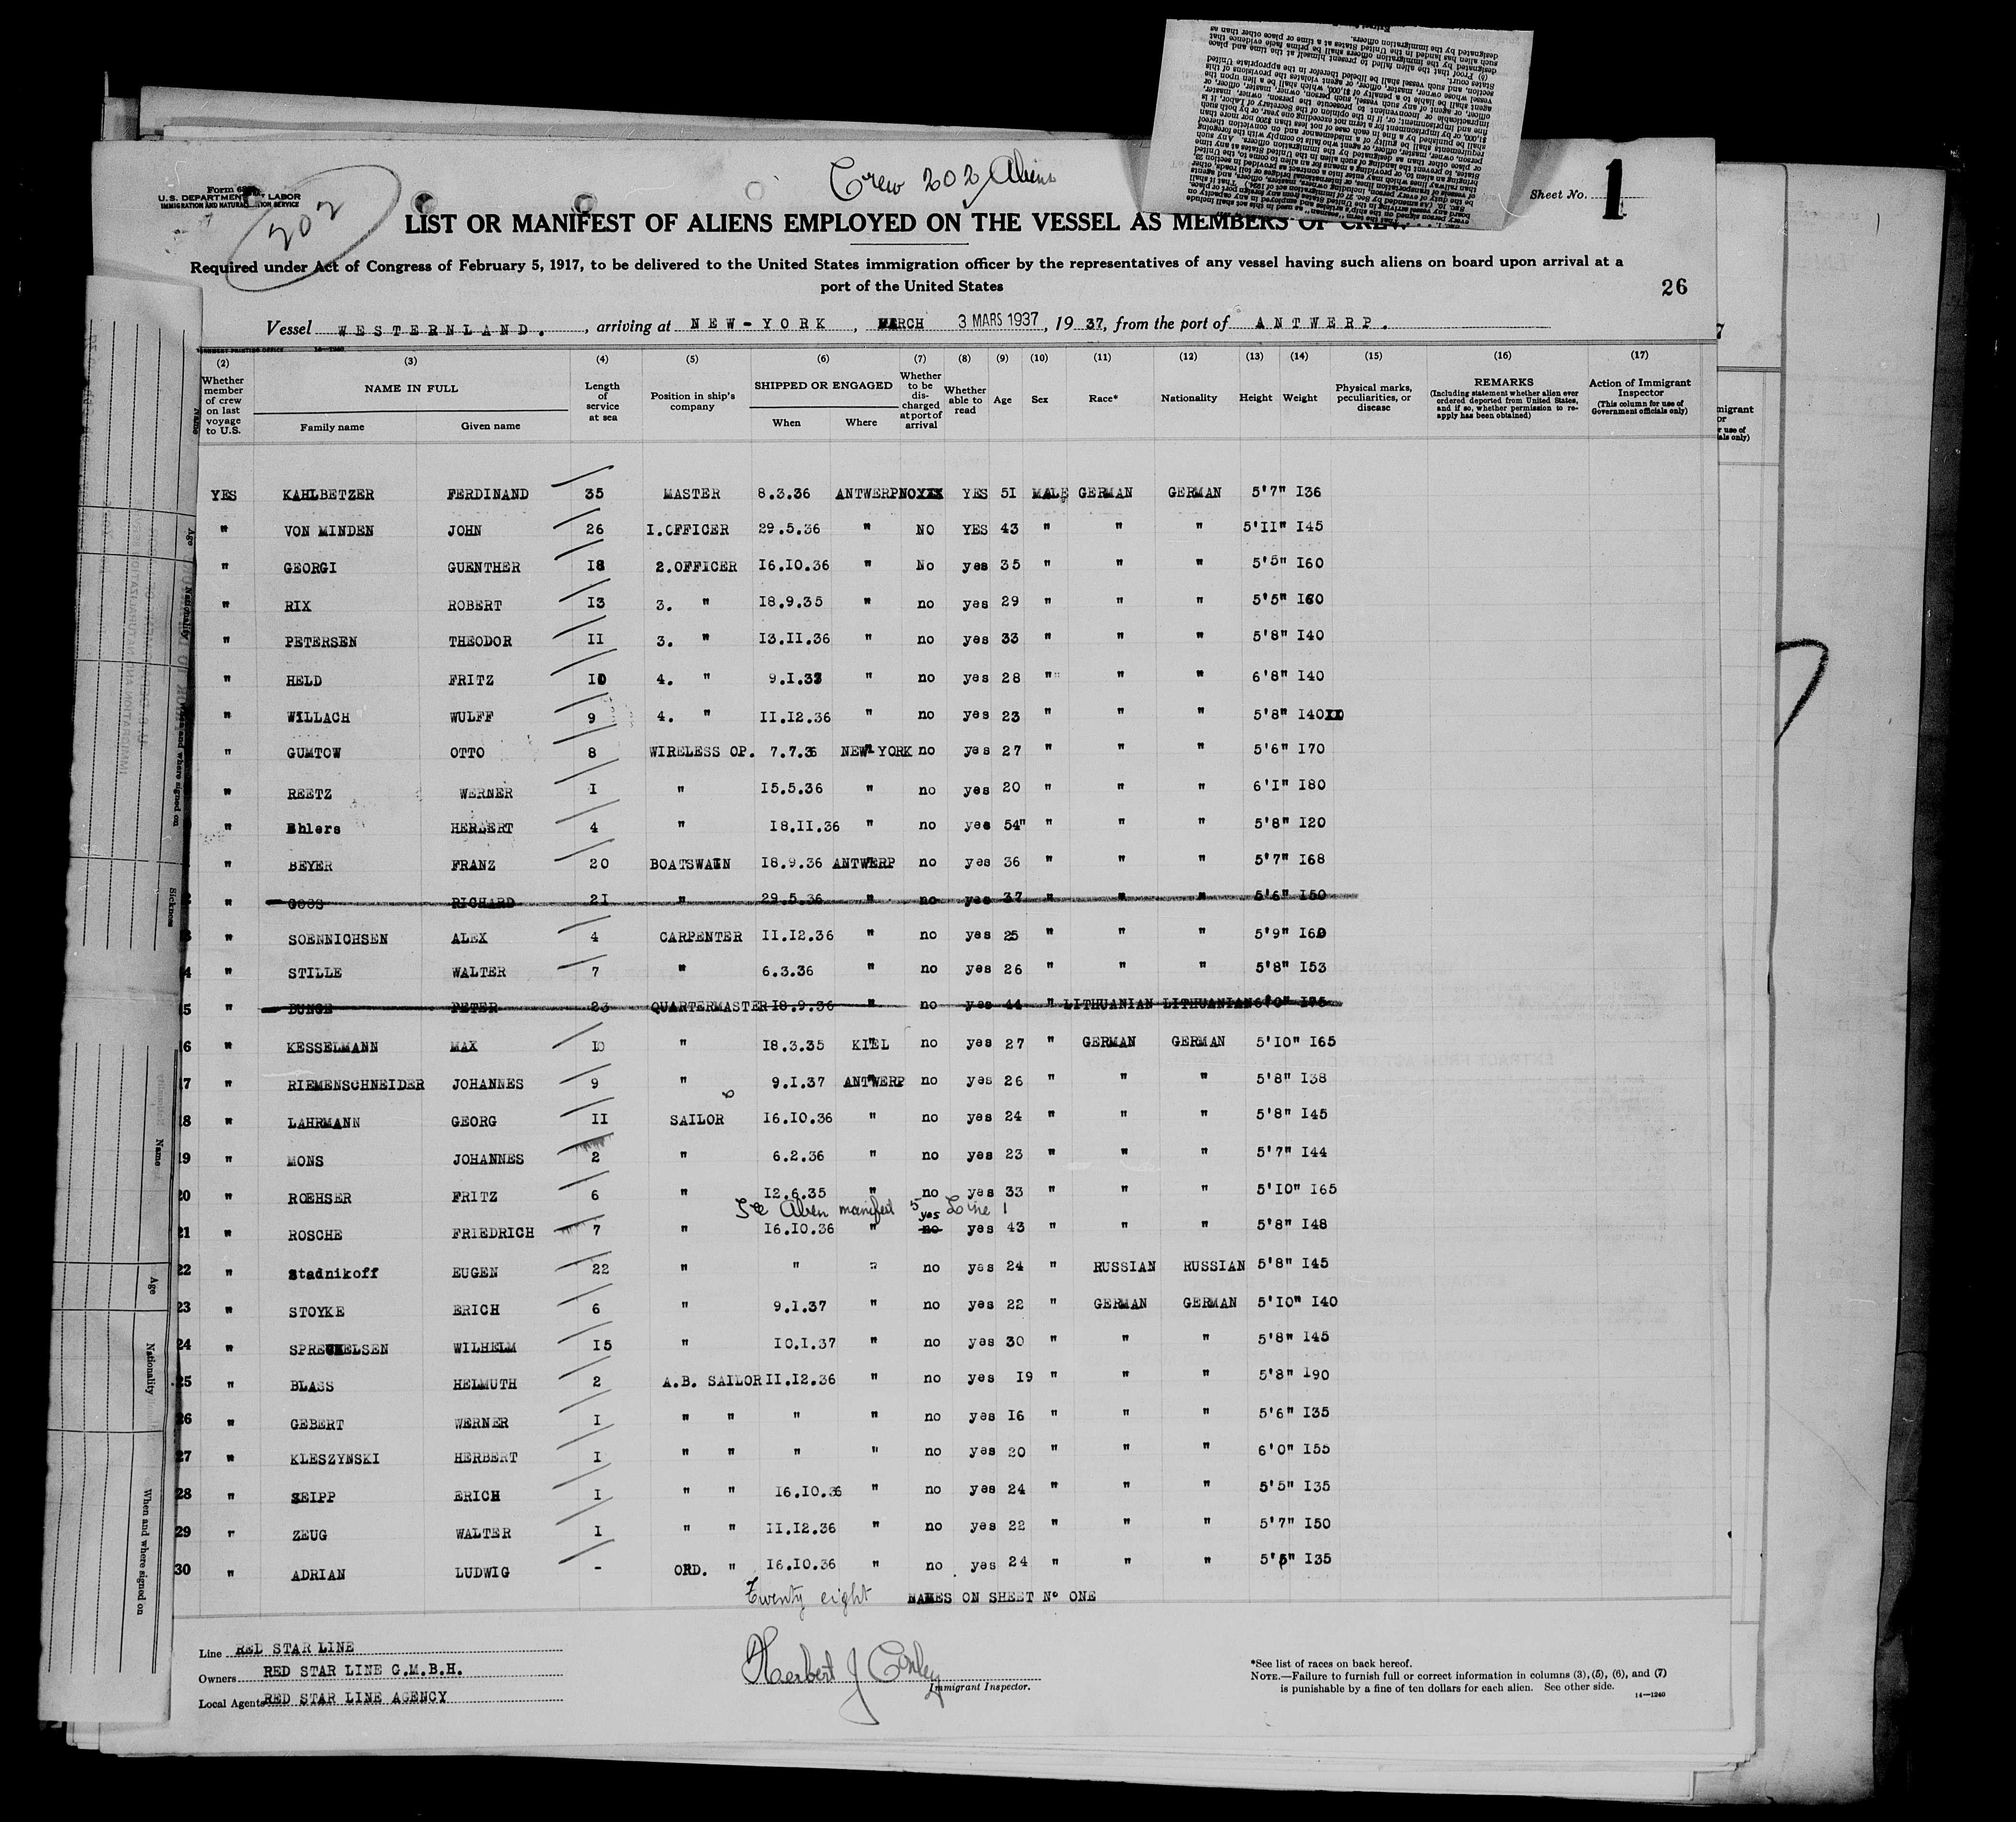 Crew 202 Aliens
Form 6
U.S. DEPARTMENT LABOR
IMMIGRATION AND NATURALIZATION SERVICE
202
Sheet No. 1
LIST OR MANIFEST OF ALIENS EMPLOYED ON THE VESSEL AS MEMBERS OF CREW
Required under Act of Congress of February 5, 1917, to be delivered to the United States immigration officer by the representatives of any vessel having such aliens on board upon arrival at a
port of the United States
26
Vessel WESTERNLAND. , arriving at NEW-YORK , MARCH 3 MARS 1937, 19 37, from the port of ANTWERP.
(2) (3) (4) (5) (6) (7) (8) (9) (10) (11) (12) (13) (14) (15) (16) (17)
Whether member of crew on last voyage to U.S. NAME IN FULL Family name Given name Length of service at sea Position in ship's company SHIPPED OR ENGAGED When Where Whether to be discharged at port of arrival Whether able to read Age Sex Race* Nationality Height Weight Physical marks, peculiarities, or disease REMARKS (Including statement whether alien ever ordered deported from United States, and if so, whether permission to reapply has been obtained) Action of Immigrant Inspector (This column for use of Government officials only)
YES KAHLBETZER FERDINAND 35 MASTER 8.3.36 ANTWERP NOXXX YES 51 MALE GERMAN GERMAN 5'7" I36
" VON MINDEN JOHN 26 I.OFFICER 29.5.36 " NO YES 43 " " " 5'II" I45
" GEORGI GUENTHER I8 2.OFFICER I6.IO.36 " No yes 35 " " " 5'5" I60
" RIX ROBERT I3 3. " I8.9.35 " no yes 29 " " " 5'5" I60
" PETERSEN THEODOR II 3. " I3.II.36 " no yes 33 " " " 5'8" I40
" HELD FRITZ IO 4. " 9.I.37 " no yes 28 " " " 6'8" I40
" WILLACH WULFF 9 4. " II.I2.36 " no yes 23 " " " 5'8" I40XX
" GUMTOW OTTO 8 WIRELESS OP. 7.7.36 NEW YORK no yes 27 " " " 5'6" I70
" REETZ WERNER I " I5.5.36 " no yes 20 " " " 6'I" I80
" Ehlers HERBERT 4 " I8.II.36 " no yes 54" " " " 5'8" I20
" BEYER FRANZ 20 BOATSWAIN I8.9.36 ANTWERP no yes 36 " " " 5'7" I68
" GOOS RICHARD 2I " 29.5.36 " no yes 37 " " " 5'6" I50
3 " SOENNICHSEN ALEX 4 CARPENTER II.I2.36 " no yes 25 " " " 5'9" I60
4 " STILLE WALTER 7 " 6.3.36 " no yes 26 " " " 5'8" I53
5 " BUNGE PETER 23 QUARTERMASTER I8.9.36 " no yes 44 " LITHUANIAN LITHUANIAN 6'0" I75
6 " KESSELMANN MAX IO " I8.3.35 KIEL no yes 27 " GERMAN GERMAN 5'IO" I65
7 " RIEMENSCHNEIDER JOHANNES 9 " 9.I.37 ANTWERP no yes 26 " " " 5'8" I38
8 " LAHRMANN GEORG II SAILOR I6.IO.36 " no yes 24 " " " 5'8" I45
19 " MONS JOHANNES 2 " 6.2.36 " no yes 23 " " " 5'7" I44
20 " ROEHSER FRITZ 6 " I2.6.35 " no yes 33 " " " 5'IO" I65
See Alien manifest 5 Line 1
21 " ROSCHE FRIEDRICH 7 " I6.IO.36 " no yes yes 43 " " " 5'8" I48
22 " Stadnikoff EUGEN 22 " " " no yes 24 " RUSSIAN RUSSIAN 5'8" I45
23 " STOYKE ERICH 6 " 9.1.37 " no yes 22 " GERMAN GERMAN 5'IO" I40
24 " SPRECKELSEN WILHELM I5 " IO.I.37 " no yes 30 " " " 5'8" I45
25 " BLASS HELMUTH 2 A.B. SAILOR II.I2.36 " no yes I9 " " " 5'8" 190
26 " GEBERT WERNER I " " " " no yes I6 " " " 5'6" I35
27 " KLESZYNSKI HERBERT I " " " " no yes 20 " " " 6'0" I55
28 " SEIPP ERICH I " " I6.IO.36 " no yes 24 " " " 5'5" I35
29 " ZEUG WALTER I " " II.I2.36 " no yes 22 " " " 5'7" I50
30 " ADRIAN LUDWIG - ORD. " I6.IO.36 " no yes 24 " " " 5'5" I35
Twenty eight NAMES ON SHEET No ONE
Line RED STAR LINE
Owners RED STAR LINE G.M.B.H.
Local Agents RED STAR LINE AGENCY
Herbert J Conley
Immigrant Inspector.
*See list of races on back hereof.
NOTE.—Failure to furnish full or correct information in columns (3), (5), (6), and (7)
is punishable by a fine of ten dollars for each alien. See other side.
14—1240